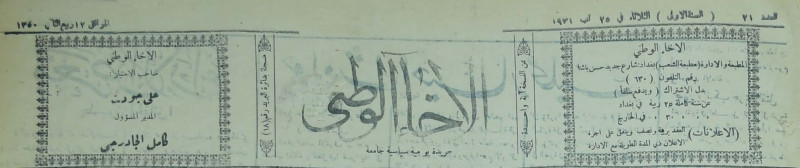 العدد ٢١ ( السنة الاولى ) الثلاثاء في ٢٥ آب ١٩٣١ الموافق ١٢ ربيع الثاني ١٣٥٠
الاخاء الوطني
المطبعة والادارة (مطبعة الشعب) بغداد شارع جديد حسن باشا
رقم التلفون ( ٦٣٠ )
بدل الاشتراك ( ويدفع سلفاً )
عن سنة كاملة ٢٥ ربية في بغداد
٣٠ في الخارج
(الاعلانات) العقد بربية ونصف ويتفق على اجرة
الاعلان ذي المدة الطويلة مع الادارة
ثمن النسخة آنة واحدة
الاخاء الوطني
جريدة يومية سياسية جامعة
الاخاء الوطني
صاحب الامتياز:
علي جودت
المدير المسؤول
كامل الجادرجي